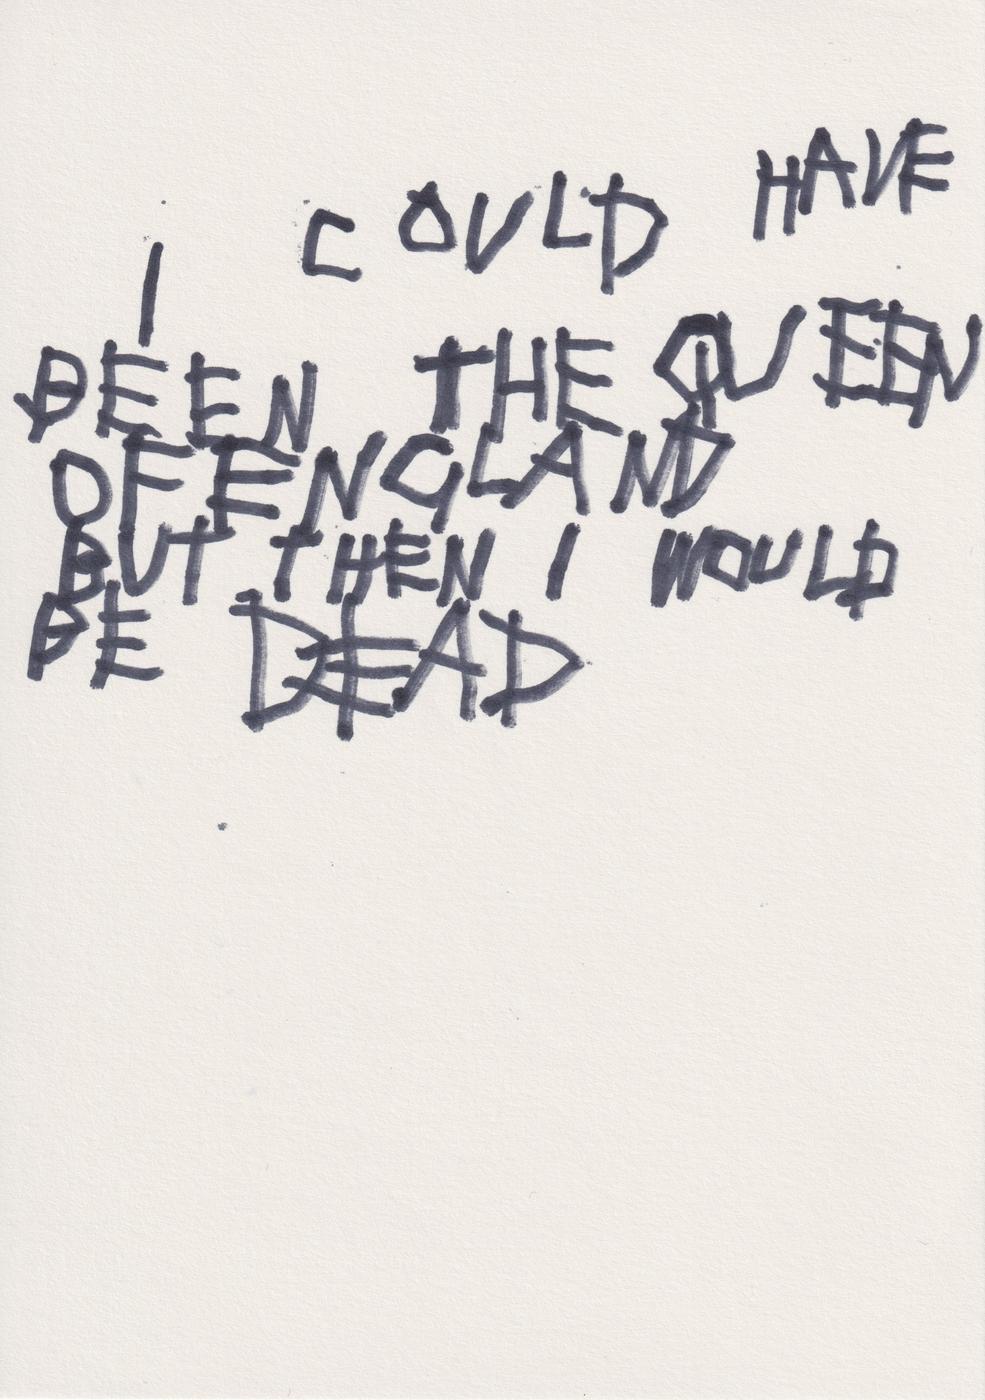 I COULD HAVE
BEEN THE QUEEN
OF ENGLAND
BUT THEN I WOULD
BE DEAD